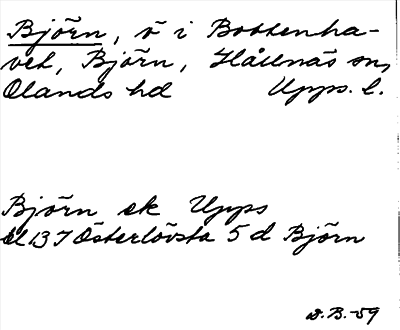 Björn, ö i Bottenha-
vet, Björn, Hållnäs sn,
Olands hd Upps. l.
Björn ek Upps
bl 137 Österlövsta 5 d Björn
D.B.-59